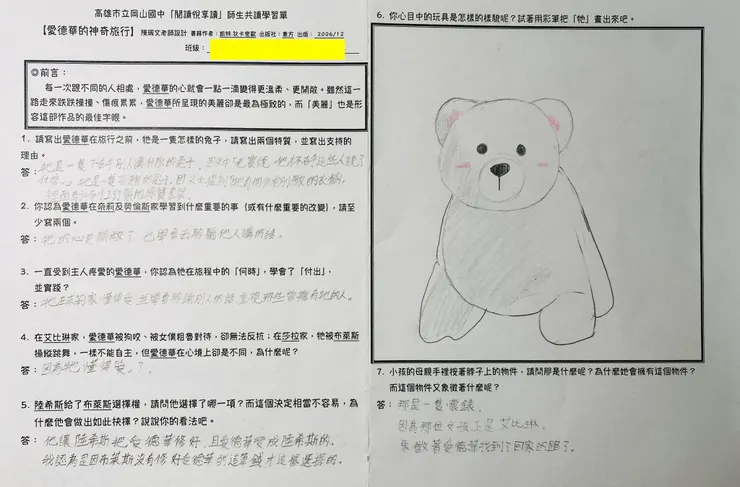 高雄市立岡山國中「閱讀悅享讀」師生共讀學習單
【愛德華的神奇旅行】 陳珮文老師設計 書籍作者：凱特.狄卡密歐 出版社：東方 出版：2006/12
班級：
◎前言：
每一次跟不同的人相處，愛德華的心就會一點一滴變得更溫柔、更開敞。雖然這一
路走來跌跌撞撞、傷痕累累，愛德華所呈現的美麗卻是最為極致的，而「美麗」也是形
容這部作品的最佳字眼。
1. 請寫出愛德華在旅行之前，牠是一隻怎樣的兔子，請寫出兩個特質，並寫出支持的
理由。
答：牠是一隻 別人講什麼的兔子，
什麼。」牠是一隻 兔子，
2. 你認為愛德華在奈莉及勞倫斯家學習到什麼重要的事（或有什麼重要的改變），請至
少寫兩個。
答：牠的心更開敞了 也學會去聆聽他人講的話。
3. 一直受到主人疼愛的愛德華，你認為牠在旅程中的「何時」，學會了「付出」，
並實踐？
答：牠在 家懂得愛，並學會聆聽別人的話 那些曾擁有牠的人。
4. 在艾比琳家，愛德華被狗咬、被女僕粗魯對待，卻無法反抗；在莎拉家，牠被布萊斯
操縱跳舞，一樣不能自主，但愛德華在心境上卻是不同，為什麼呢？
答：因為牠懂得愛了。
5. 陸希斯給了布萊斯選擇權，請問他選擇了哪一項？而這個決定相當不容易，為
什麼他會做出如此抉擇？說說你的看法吧。
答：他讓陸希斯把愛德華修好，且愛德華變成陸希斯的。
我認為是因布萊斯沒有修好愛德華的這筆錢才這樣選擇的。
6. 你心目中的玩具是怎樣的樣貌呢？試著用彩筆把「牠」畫出來吧。
7. 小孩的母親手裡按著脖子上的物件，請問那是什麼呢？為什麼她會擁有這個物件？
而這個物件又象徵著什麼呢？
答：那是一隻懷錶，
因為那位女孩正是艾比琳，
象徵著愛德華找到了回家的路了。